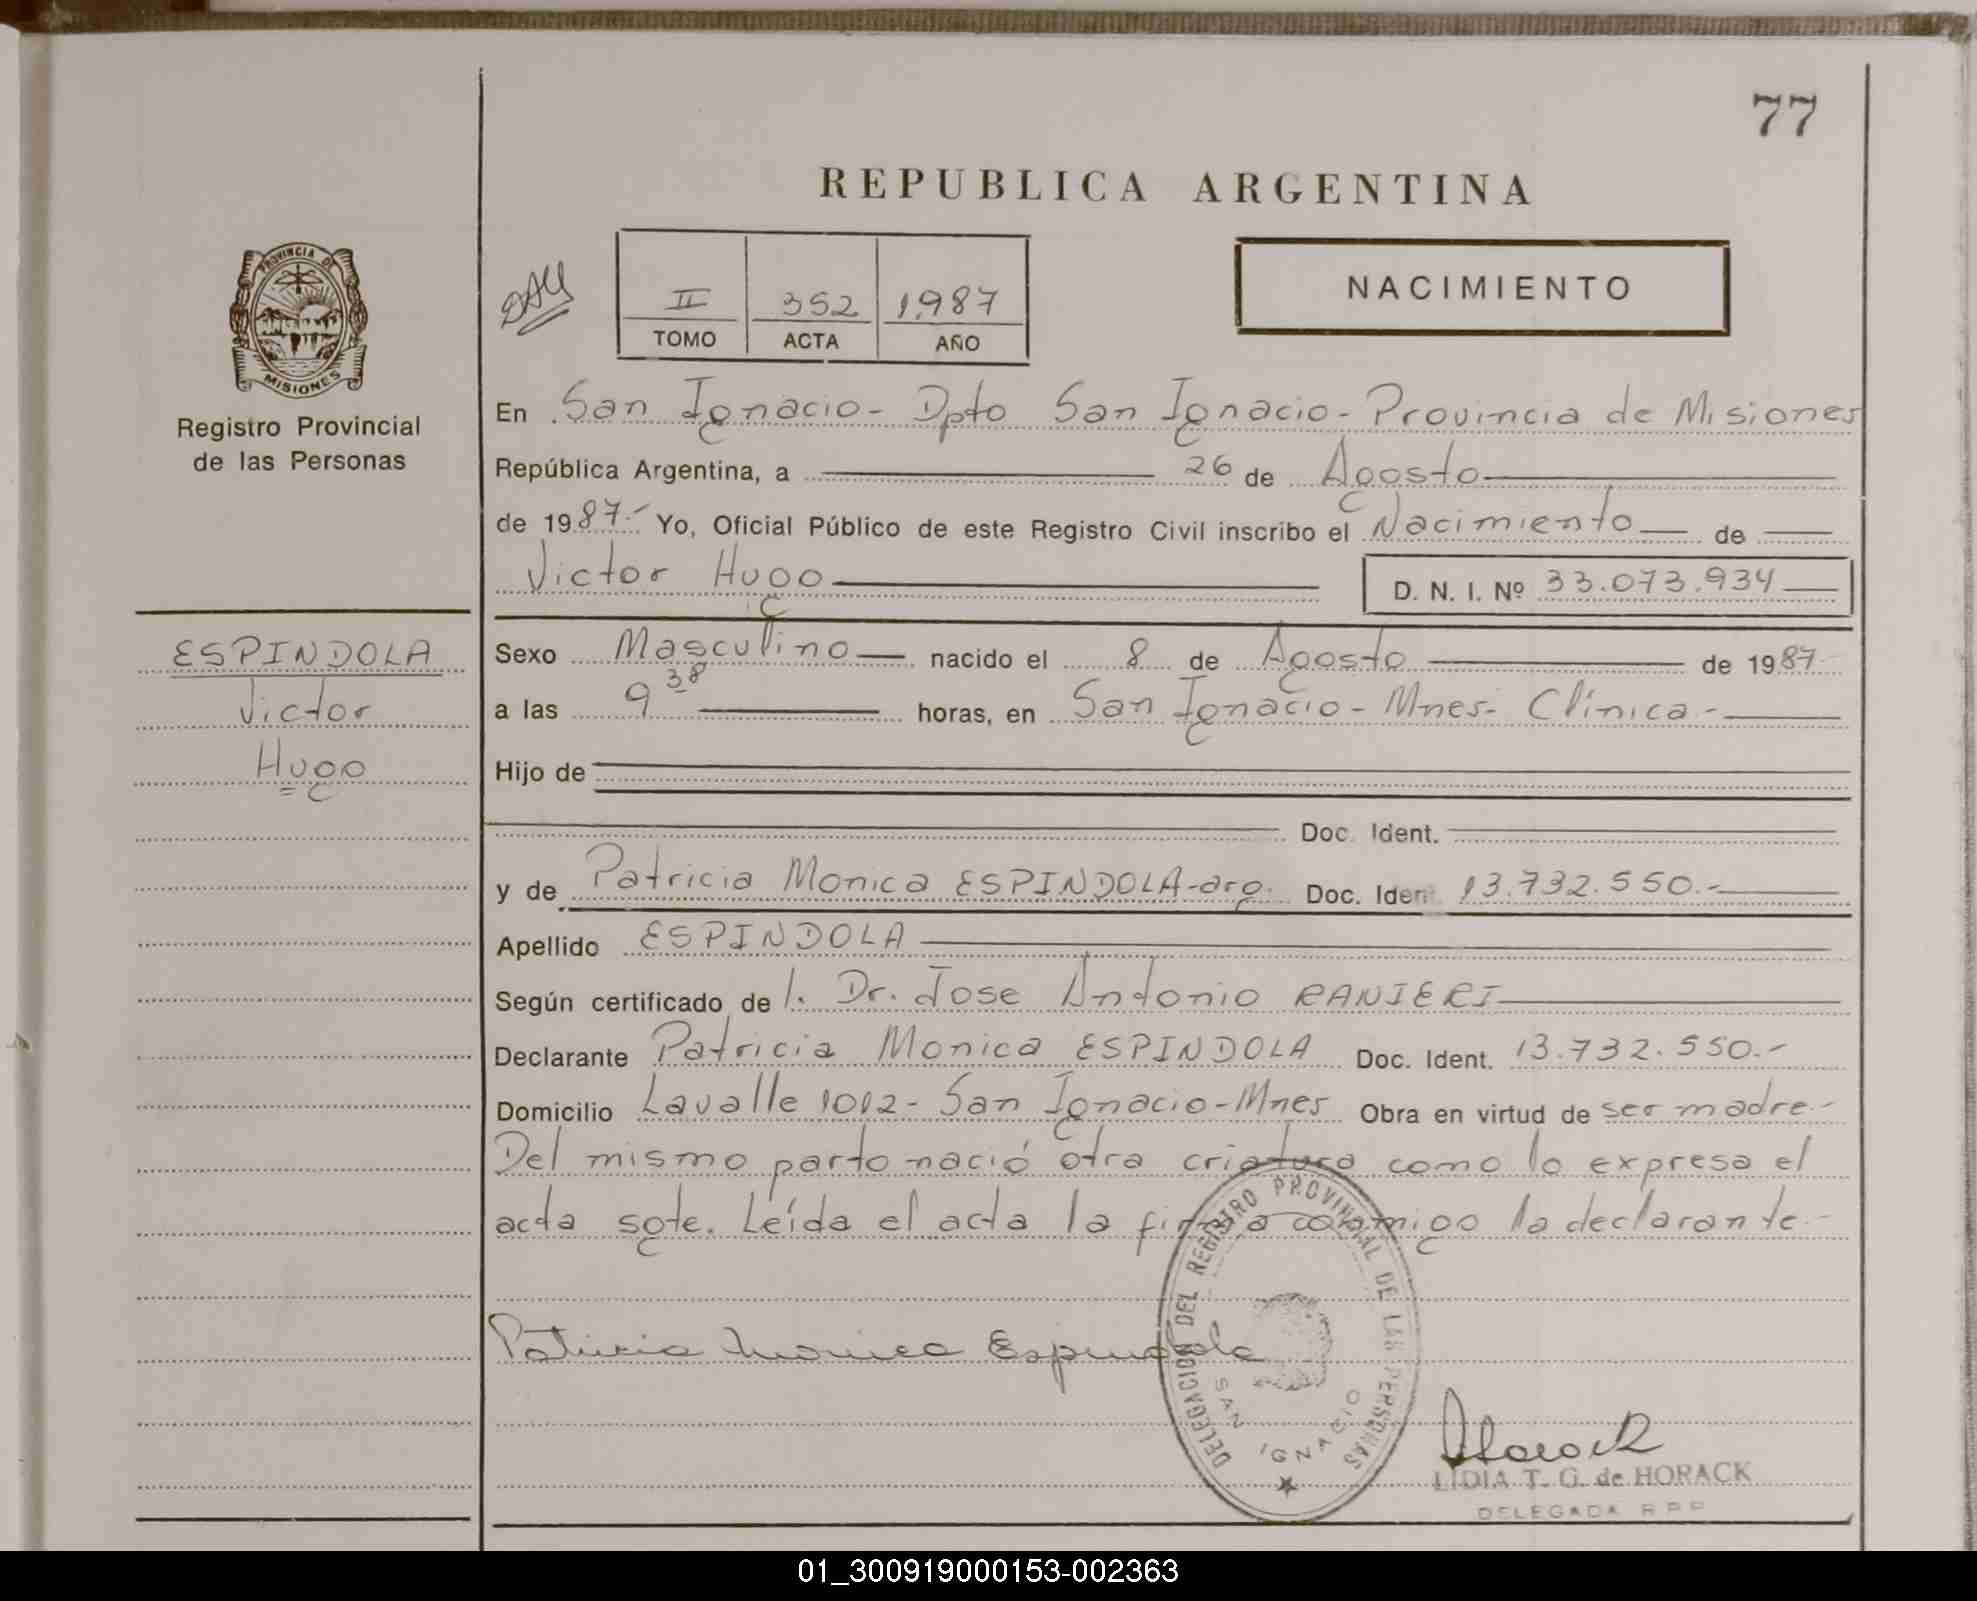 77
REPUBLICA ARGENTINA
PROVINCIA DE
MISIONES
Registro Provincial
de las Personas
II 352 1.987
TOMO ACTA AÑO
NACIMIENTO
En San Ignacio - Dpto San Ignacio - Provincia de Misiones
República Argentina, a 26 de Agosto
de 1987.- Yo, Oficial Público de este Registro Civil inscribo el Nacimiento de
Victor Hugo D. N. I. Nº 33.073.934
ESPINDOLA
Victor
Hugo
Sexo Masculino nacido el 8 de Agosto de 1987-
a las 9 38 horas, en San Ignacio - Mnes- Clínica -
Hijo de
Doc. Ident.
y de Patricia Monica ESPINDOLA-arg. Doc. Ident. 13.732.550.-
Apellido ESPINDOLA
Según certificado de l. Dr. Jose Antonio RANIERI
Declarante Patricia Monica ESPINDOLA Doc. Ident. 13.732.550.-
Domicilio Lavalle 1012- San Ignacio-Mnes Obra en virtud de ser madre.-
Del mismo parto nació otra criatura como lo expresa el
acta sgte. Leída el acta la firma conmigo la declarante.-
Patricia Monica Espindola
DELEGACION DEL REGISTRO PROVINCIAL DE LAS PERSONAS
SAN IGNACIO
Horack
LIDIA T. G. de HORACK
DELEGADA R.P.P.
01_300919000153-002363